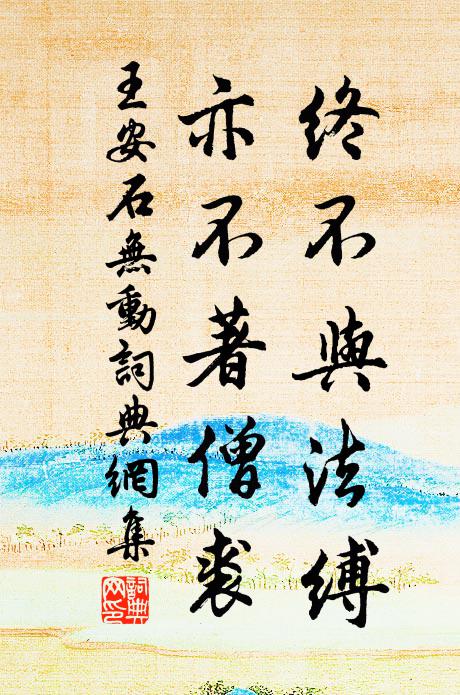 終不與法縛
亦不著僧裘
王安石無動詞典網集
詞典網印